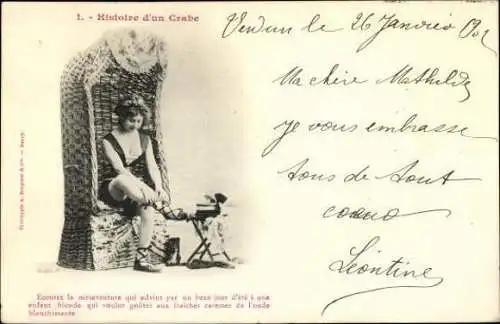 1. - Histoire d'un Crabe
Verdun le 26 Janvier
Ma chère Mathilde
je vous embrasse
tous de tout
coeur
Léontine
Phototypie A. Bergeret & Cie. — Nancy.
Ecoutez la mésaventure qui advint par un beau jour d'été à une
enfant blonde qui voulut goûter aux fraîches caresses de l'onde
blanchissante